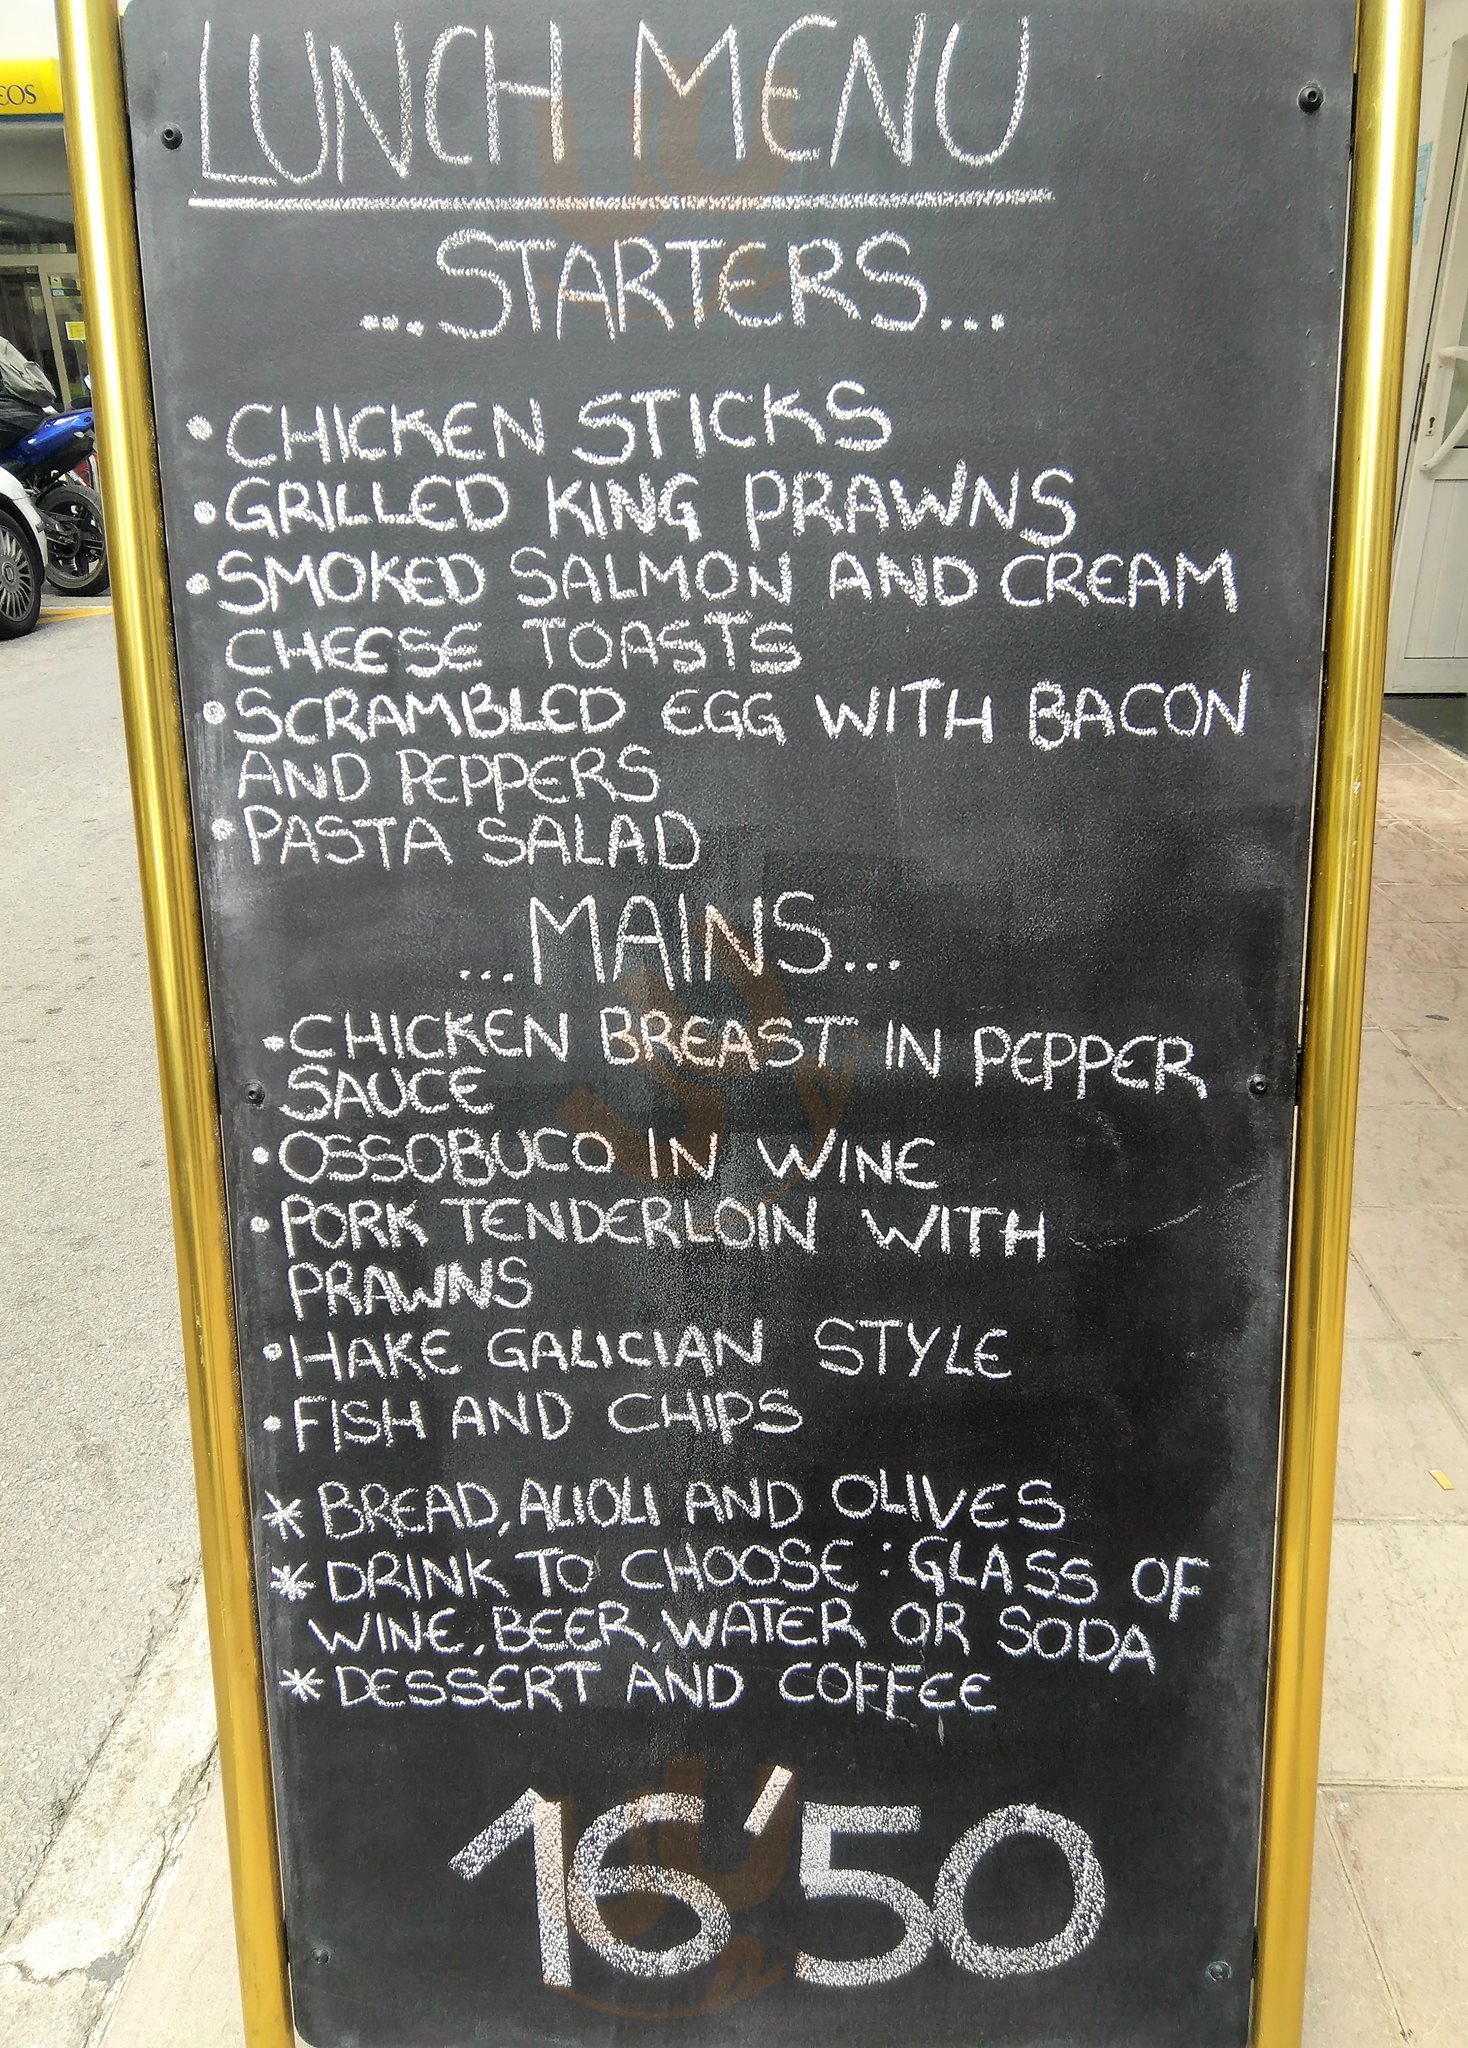 EOS
LUNCH MENU
...STARTERS...
• CHICKEN STICKS
• GRILLED KING PRAWNS
• SMOKED SALMON AND CREAM
CHEESE TOASTS
• SCRAMBLED EGG WITH BACON
AND PEPPERS
• PASTA SALAD
...MAINS...
• CHICKEN BREAST IN PEPPER
SAUCE
• OSSOBUCO IN WINE
• PORK TENDERLOIN WITH
PRAWNS
• HAKE GALICIAN STYLE
• FISH AND CHIPS
* BREAD, ALIOLI AND OLIVES
* DRINK TO CHOOSE: GLASS OF
WINE, BEER, WATER OR SODA
* DESSERT AND COFFEE
16'50